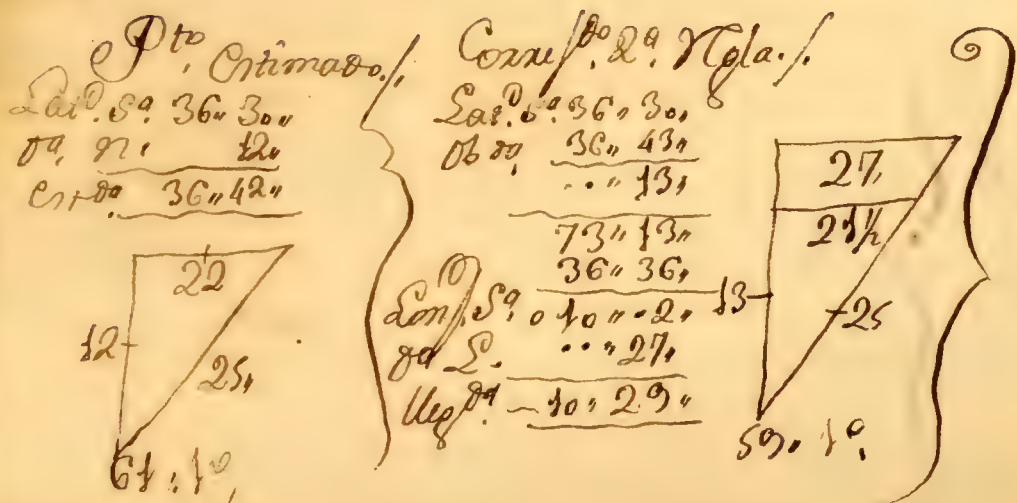 Pto. Estimado./.
Lat.d Sa. 36,, 30,,
Da. N. 12,,
Est.da 36,, 42,,
22
12
25,
61,, 1º,
Corre/.do 2ª. Regla./.
Lat.d Sa. 36,, 30,
Ob.da 36,, 43,
..,, 13,
73,, 13,,
36,, 36,
Lon/. Sa. 010,,.2,,
da L. ..,, 27,
Lleg.da 10,, 29,,
27,
21½
13
25
59,, 1º,